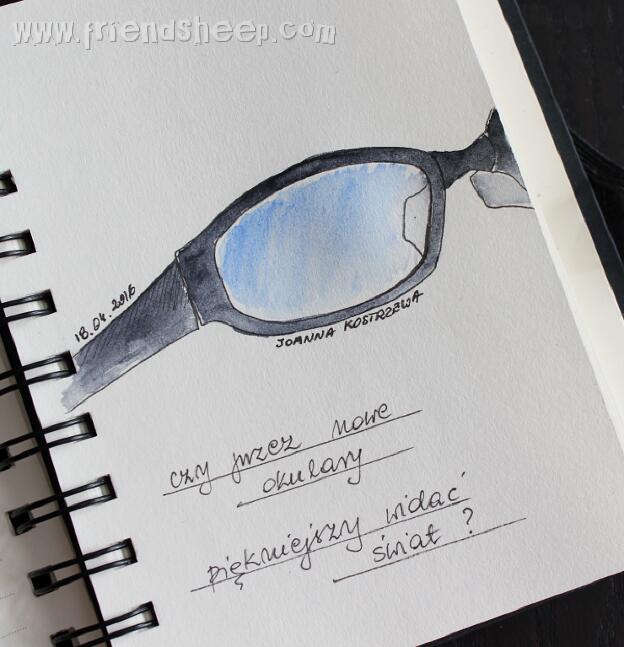 www.friendsheep.com
18.04.2016
JOANNA KOSTRZEWA
czy przez nowe
okulary
piękniejszy widać
świat?